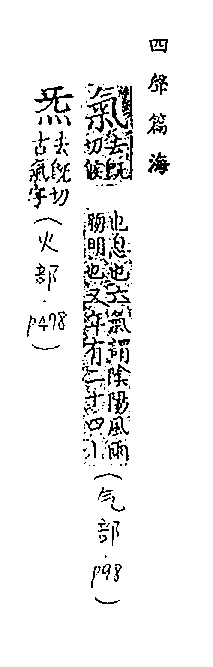 四聲篇海
氣
去既
切候
也息也六氣謂陰陽風雨
晦明也又年有二十四
(气部.p98)
炁
去既切
古氣字
(火部.p478)